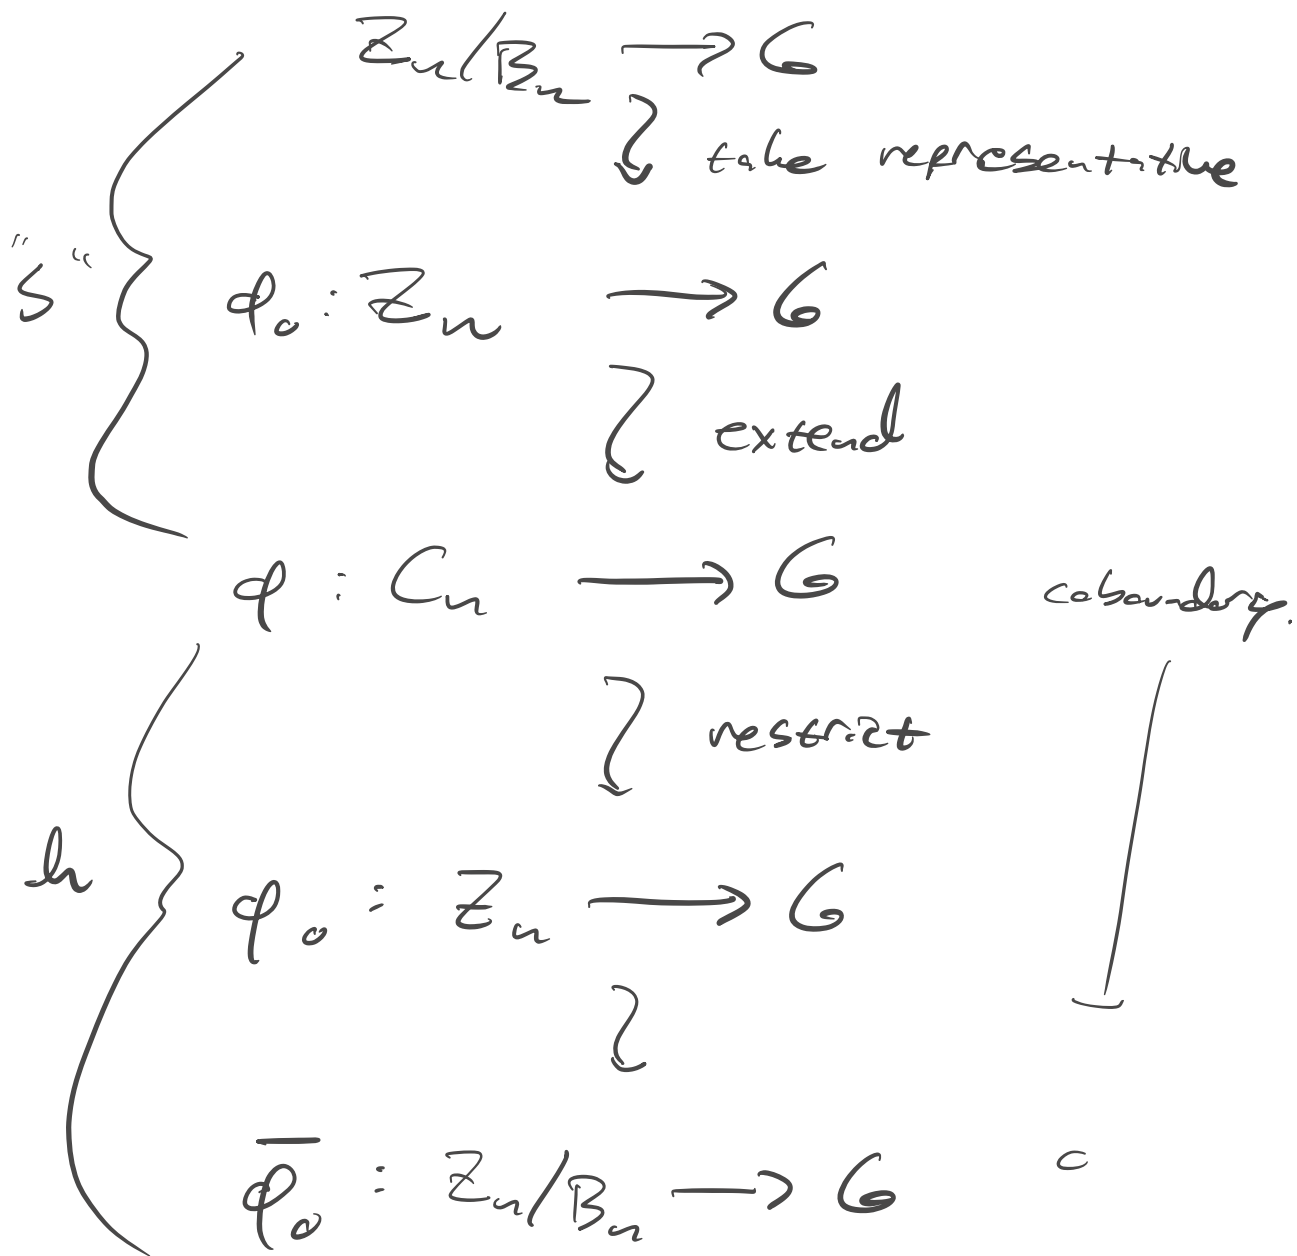 Zn/Bn → G
take representative
"s"
φ₀ : Zn → G
extend
φ : Cn → G
coboundary.
restrict
h
φ₀ : Zn → G
φ̄₀ : Zn/Bn → G
0